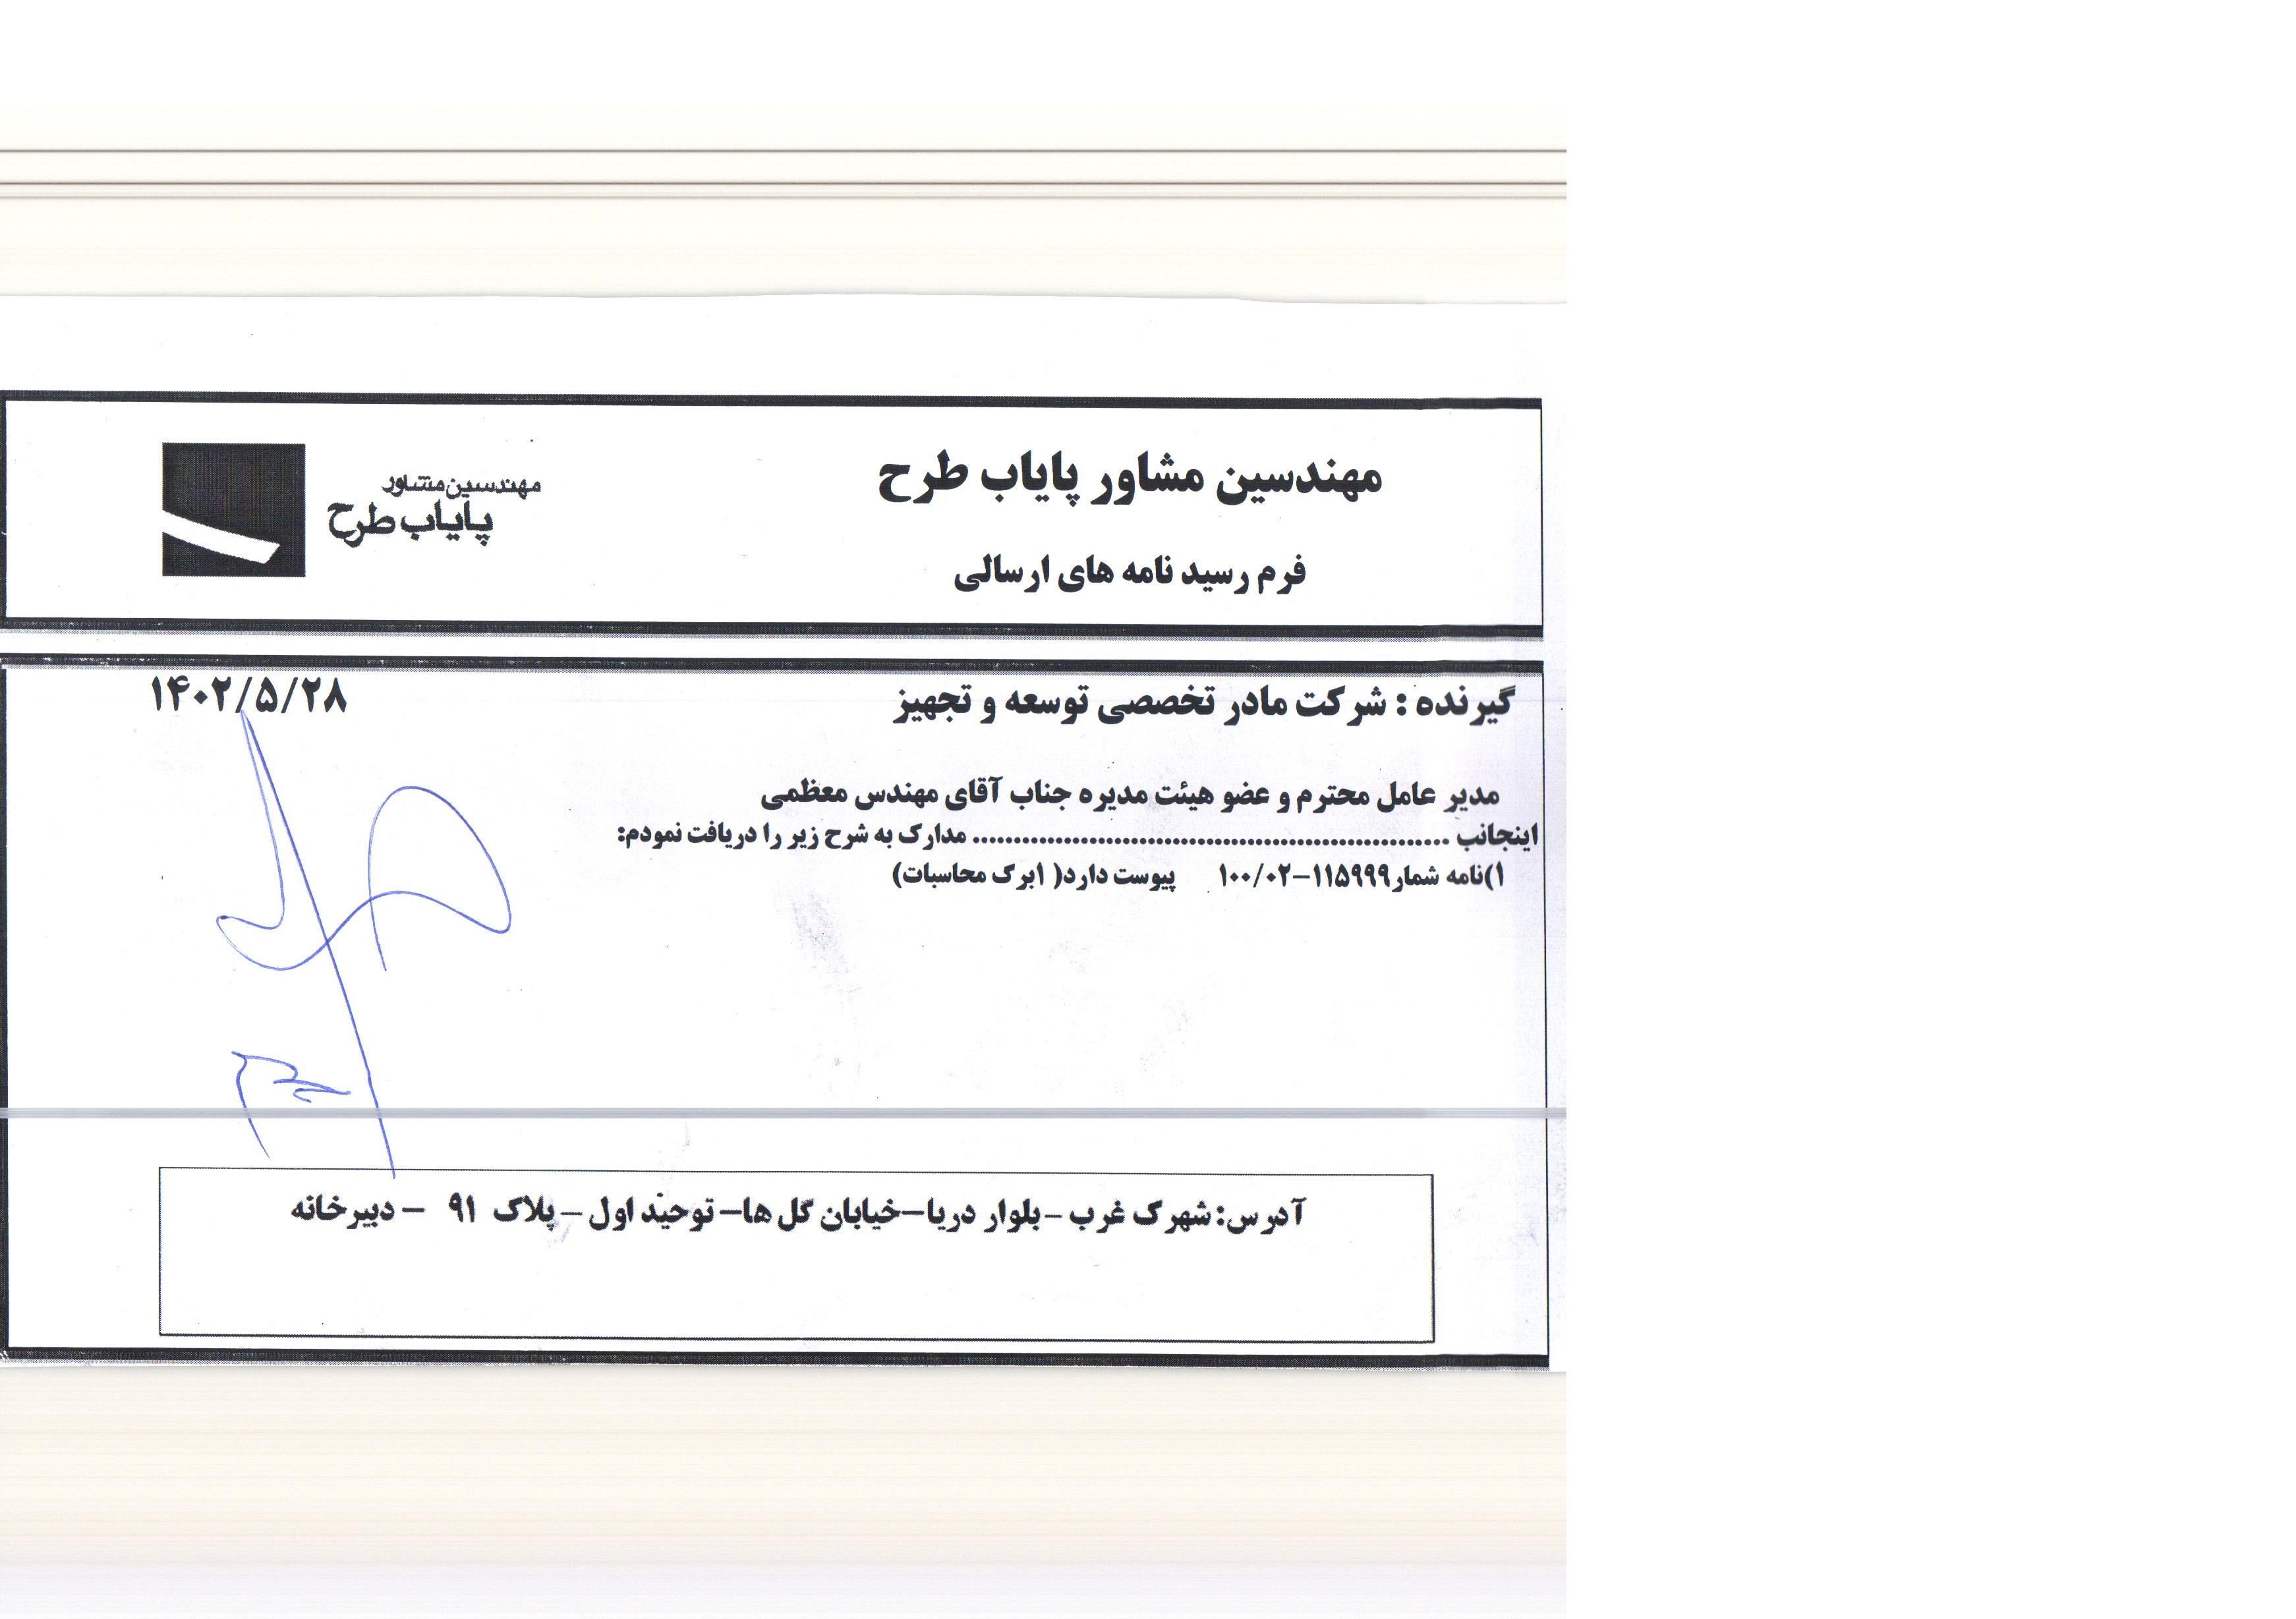 مهندسین مشاور پایاب طرح
مهندسین مشاور
پایاب طرح
فرم رسید نامه های ارسالی
گیرنده : شرکت مادر تخصصی توسعه و تجهیز
۱۴۰۲/۵/۲۸
مدیر عامل محترم و عضو هیئت مدیره جناب آقای مهندس معظمی
اینجانب .......................................................... مدارک به شرح زیر را دریافت نمودم:
۱)نامه شمار۱۱۵۹۹۹-۱۰۰/۰۲ پیوست دارد( ۱برگ محاسبات)
آدرس: شهرک غرب –بلوار دریا–خیابان گل ها– توحید اول –پلاک ۹۱ – دبیرخانه